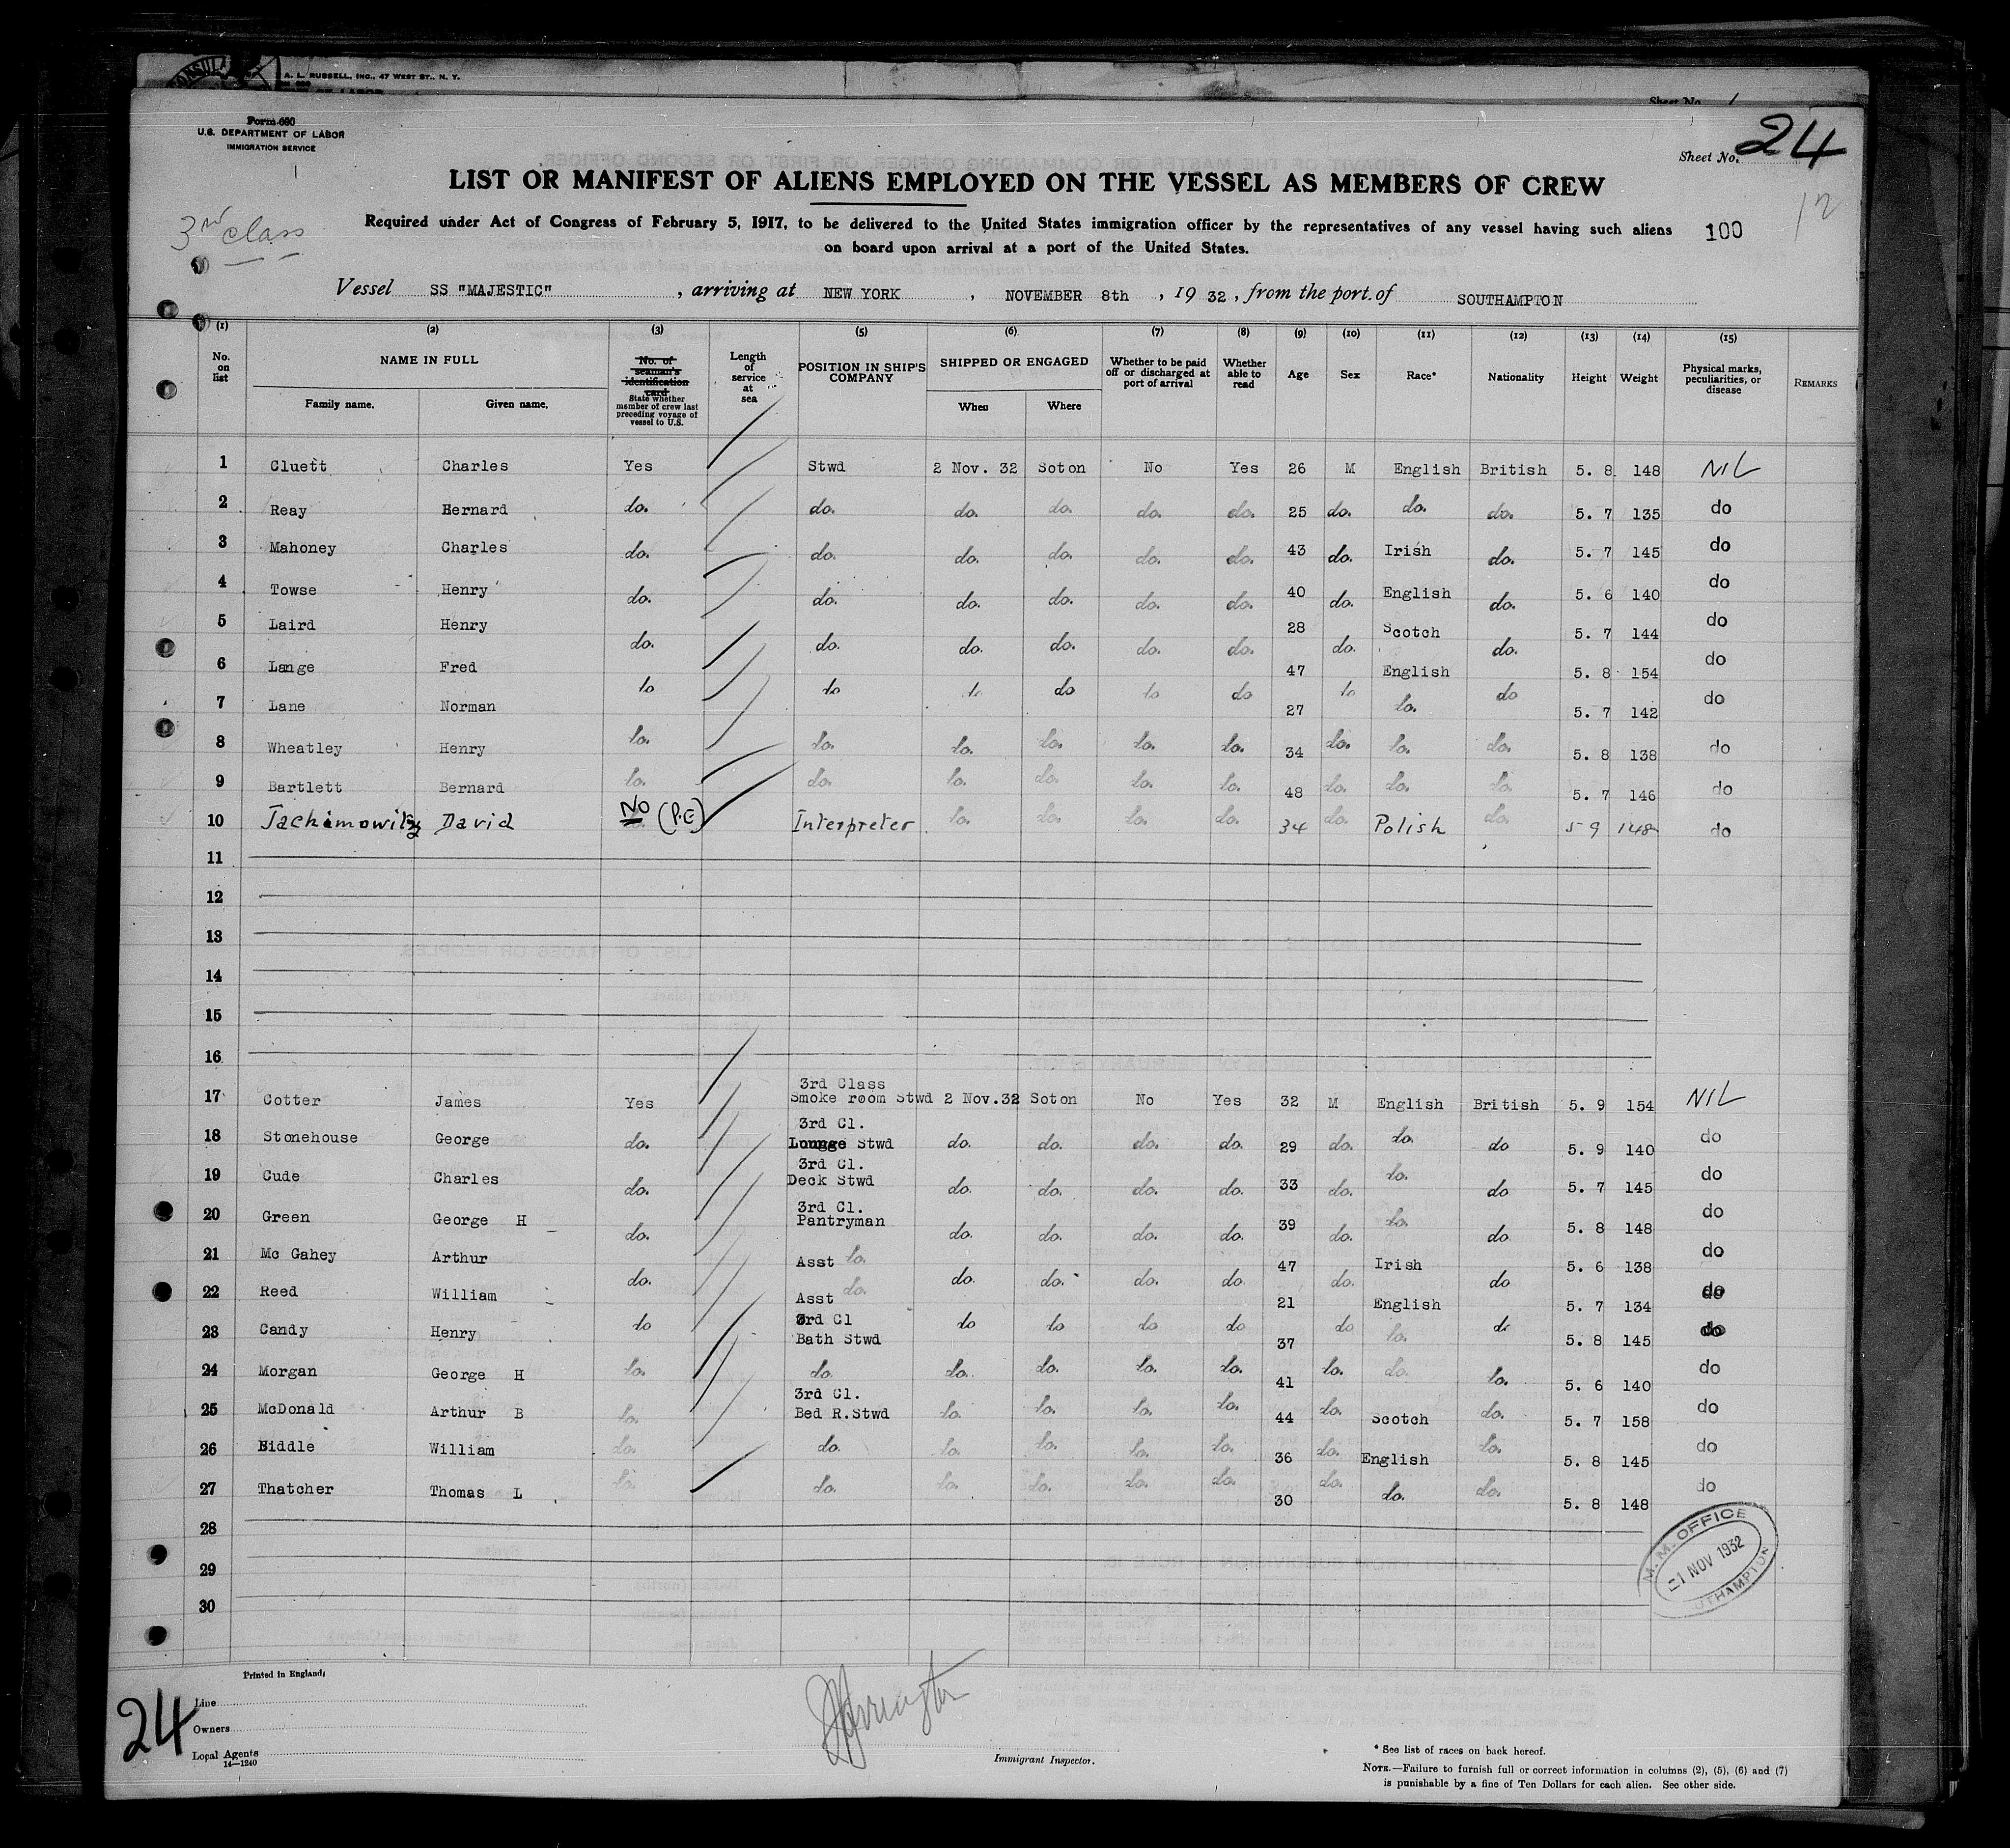 CONSULA
A. L. RUSSELL, INC., 47 WEST ST., N. Y.
Sheet No. 1
Form 680
U.S. DEPARTMENT OF LABOR
IMMIGRATION SERVICE
Sheet No. 24
LIST OR MANIFEST OF ALIENS EMPLOYED ON THE VESSEL AS MEMBERS OF CREW
3rd class
Required under Act of Congress of February 5, 1917, to be delivered to the United States immigration officer by the representatives of any vessel having such aliens 100 12
on board upon arrival at a port of the United States.
Vessel SS "MAJESTIC", arriving at NEW YORK, NOVEMBER 8th, 1932, from the port of SOUTHAMPTON
(1) (2) (3) (5) (6) (7) (8) (9) (10) (11) (12) (13) (14) (15)
No. on list NAME IN FULL Family name. Given name. No. of seaman's identification card State whether member of crew last preceding voyage of vessel to U.S. Length of service at sea POSITION IN SHIP'S COMPANY SHIPPED OR ENGAGED When Where Whether to be paid off or discharged at port of arrival Whether able to read Age Sex Race* Nationality Height Weight Physical marks, peculiarities, or disease REMARKS
1 Cluett Charles Yes Stwd 2 Nov. 32 Soton No Yes 26 M English British 5. 8 148 NIL
2 Reay Bernard do. do. do. do. do. do. 25 do. do. do. 5. 7 135 do
3 Mahoney Charles do. do. do. do. do. do. 43 do. Irish do. 5. 7 145 do
4 Towse Henry do. do. do. do. do. do. 40 do. English do. 5. 6 140 do
5 Laird Henry do. do. do. do. do. do. 28 do. Scotch do. 5. 7 144 do
6 Lange Fred do do do do do do 47 do English do 5. 8 154 do
7 Lane Norman 27 do. 5. 7 142 do
8 Wheatley Henry do. do. do. do. do. do. 34 do. do. do. 5. 8 138 do
9 Bartlett Bernard do. do. do. do. do. do. 48 do. do. do. 5. 7 146 do
10 Jachimowitz David No (P.E) Interpreter do. do. do. do. 34 do. Polish do. 5 9 148 do
11
12
13
14
15
16
17 Cotter James Yes 3rd Class Smoke room Stwd 2 Nov.32 Soton No Yes 32 M English British 5. 9 154 NIL
18 Stonehouse George do. 3rd Cl. Lounge Stwd do. do. do. do. 29 do. do. do 5. 9 140 do
19 Cude Charles do. 3rd Cl. Deck Stwd do. do. do. do. 33 do. do. do 5. 7 145 do
20 Green George H do. 3rd Cl. Pantryman do. do. do. do. 39 do. do. do 5. 8 148 do
21 Mc Gahey Arthur do. Asst do. do. do. do. do. 47 do. Irish do 5. 6 138 do
22 Reed William Asst do. 21 English 5. 7 134 do
23 Candy Henry do 3rd Cl Bath Stwd do do do do 37 do do. do 5. 8 145 do
24 Morgan George H do. do. do. do. do. do. 41 do. do. do. 5. 6 140 do
25 McDonald Arthur B do. 3rd Cl. Bed R.Stwd do. do. do. do. 44 do. Scotch do. 5. 7 158 do
26 Biddle William do. do. do. do. do. do. 36 do. English do. 5. 8 145 do
27 Thatcher Thomas L do. do. do. do. do. do. 30 do. do. do. 5. 8 148 do
28
29
30
M. M. OFFICE
1 NOV 1932
UTHAMPTON
Printed in England.
24
Line
Owners
Local Agents
14—1240
Immigrant Inspector.
* See list of races on back hereof.
NOTE.—Failure to furnish full or correct information in columns (2), (5), (6) and (7)
is punishable by a fine of Ten Dollars for each alien. See other side.